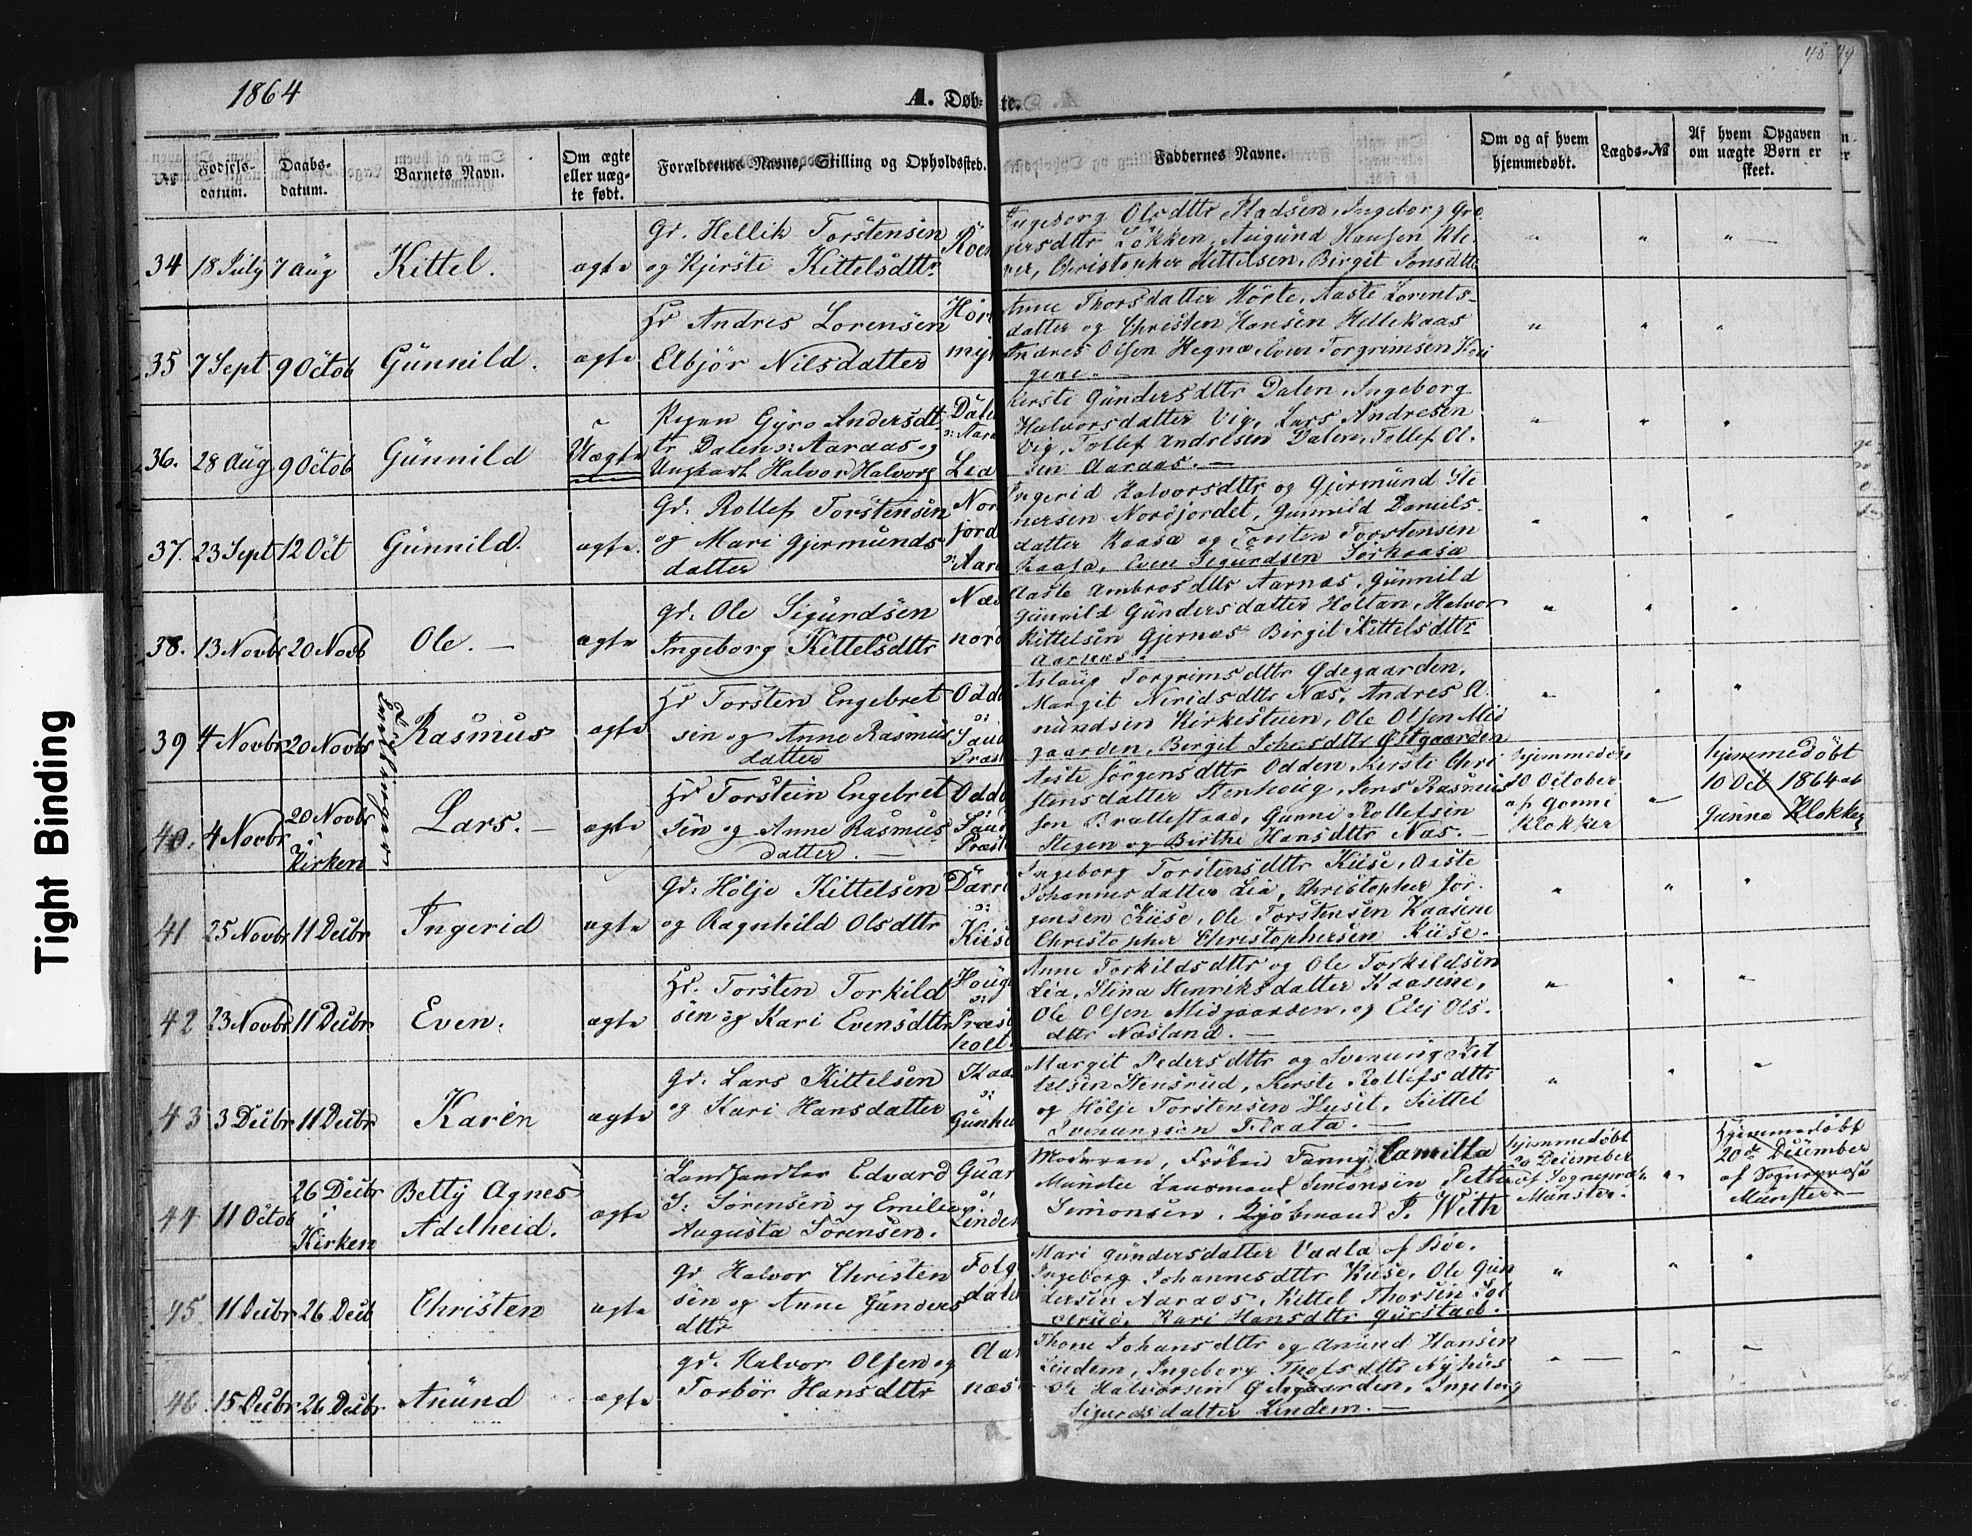 1864
A. Døb-
te.
48 49
Tight Binding
№
Fødsels-
datum.
Daabs-
datum.
Barnets Navn.
Om ægte
eller uæg-
te født.
Forældrenes Navne, Stilling og Opholdssted.
Faddernes Navne.
Om og af hvem
hjemmedøbt.
Lægds-№
Af hvem Opgaven
om uægte Børn er
skeet.
34 18 July 7 Aug Kittel. ægte
Gd. Hellik Torstensen
og Kjersti Kittelsdttr
Ingeborg Olsdttr Pladsen, Ingeborg Gre-
gersdttr Løkken, Amund Hansen Kle-
ver, Christopher Kittelsen, Birgit Jonsdttr
35 7 Sept 9 Octob Gunnild. ægte
Hd Andres Lorensen
Elbjør Nilsdatter
Hør
myr
Anne Thorsdatter Hørte, Aaste Lorents-
datter og Christen Hansen Hellekaas
Andres Olsen Hegna, Even Torgrimsen
36. 28 Aug 9 Octob Gunnild Uægte
Pigen Gyro Andersdt
tr Dalen Aaraas og
Ungkarl Halvor Halvors
Dale
Lia
Kersti Gundersdttr Dalen, Ingeborg
Halvorsdatter Vig, Lars Andresen
Vig, Tollef Andresen Dalen, Tollef Ol-
sen Aaraas. —
37. 23 Sept 12 Oct Gunnild. ægte.
Gd. Rollef Torstensen
og Mari Gjermunds
datter
Nor
jord
Aar
Ingerid Halvorsdttr og Gjermund Ste
nersen Nordjordet, Gunnild Daniels-
datter Kaasa og Torsten Torstensen
Kaasa, Even Sigurdsen Sørkaasa
38. 13 Novbr 20 Novb Ole. — ægte
Gd. Ole Sigundsen
Ingeborg Kittelsdttr
Næs
nord
Aaste Ambrosdttr Aarnæs, Gunnild
Gunnild Gundersdatter Holtan, Halvor
Kittelsen Gjernæs Birgit Kittelsdttr
Aarnæs. —
39 4 Novbr 20 Novbr Rasmus ægte
Hd Torsten Engebret
sen og Anne Rasmus
datter
Odd
Saud
Præst
Aslaug Torgrimsdttr Ødegaarden,
Margit Neridsdttr Næs, Andres A-
mundsen Kirkestuen, Ole Olsen Mid
gaarden, Birgit Johnsdttr Østgaarden
40. 4 Novbr 20 Novbr
i
Kirken
Lars. — ægte
Hd Torstein Engebret
sen og Anne Rasmus
datter. —
Odd
Saud
Præst
Aaste Jørgensdttr Odden, Kersti Chri
stensdatter Stenhoug, Jens Rasmus
sen Brattestaad, Gunne Rollefsen
Stegen og Birthe Hansdttr Næs. —
hjemmedøbt
10 October
af Gonne
Klokker
hjemmedøbt
10 Oct 1864 af
Gunne Klokker
41 25 Novbr 11 Decbr Ingerid ægte
Gd. Hølje Kittelsen
og Ragnhild Olsdttr
Kiise
Ingeborg Torstensdttr Kiise, Aaste
Johannesdatter Lia, Christopher Jør-
gensen Kiise, Ole Torstensen Kaasene
Christopher Christophersen Kiise.
42 23 Novbr 11 Decbr Even. ægte
Hd. Torsten Torkild
sen og Kari Evensdttr
Houg
Præst
holt
Anne Torkildsdttr og Ole Torkildsen
Lia, Stina Henriksdatter Kaasene,
Ole Olsen Midgaarden, og Elej Ols-
dttr Næsland. —
43 3 Decbr 11 Decbr Karen ægte
Gd. Lars Kittelsen
og Kari Hansdatter
Kaas
Gunheim
Margit Pedersdttr og Svenung Kit
telsen Stensrud, Kersti Rollefsdttr
og Hølje Torstensen Huset, Kittel
Svenungsen Flaata. —
44 11 Octob 26 Decbr
i
Kirken
Betty Agnes
Adelheid. ægte
Landhandler Edvard
S. Sørensen og Emilie
Augusta Sørensen.
Guar
Linde
Moderen, Frøken Fanny Camilla
Munster Lensmand Simonsen, Petter
Simonsen, Kjøbmand P. With
hjemmedøbt
20 Deicember
af Sognepræst
Münster.
hjemmedøbt
20de Deicember
af Sognepræst
Münster. —
45 11 Decbr 26 Decb Christen ægte
Gd Halvor Christen
sen og Anne Gunders
dttr
Folg
dale
Mari Gundersdatter Vaala af Bøe.
Ingeborg Johannesdttr Kiise, Ole Gun
dersen Aaraas, Kittel Thorsen Sol
serud, Kari Hansdttr Gurstad.
46 15 Decbr 26 Decbr Amund ægte
Gd. Halvor Olsen og
Torbør Hansdttr
Aar
næs
Thone Johansdttr og Amund Hansen
Lindem, Ingeborg Thorsdttr Nyhus
Ole Halvorsen Ødegaarden, Ingeborg
Sigurdsdatter Lindem. —